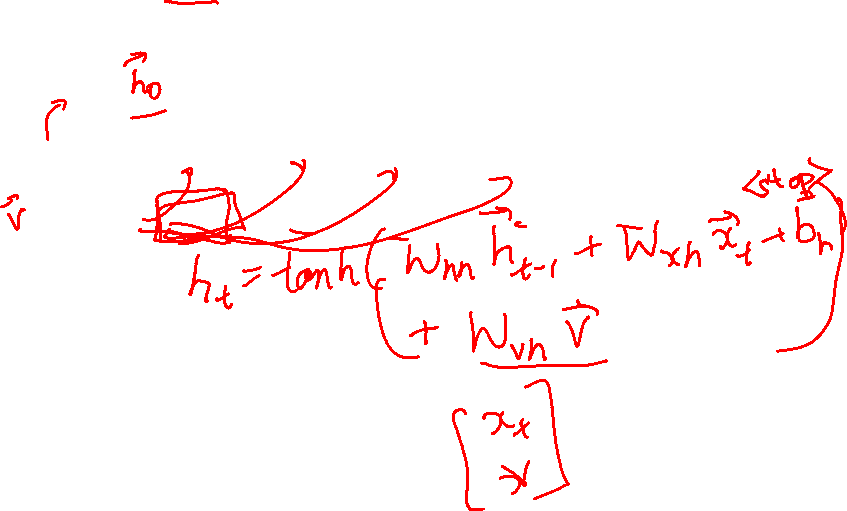 h⃗₀
v⃗
<stop>
hₜ = tanh( Wₕₕ h⃗ₜ₋₁ + Wₓₕ x⃗ₜ + bₕ
+ Wᵥₕ v⃗ )
[ xₜ
v ]